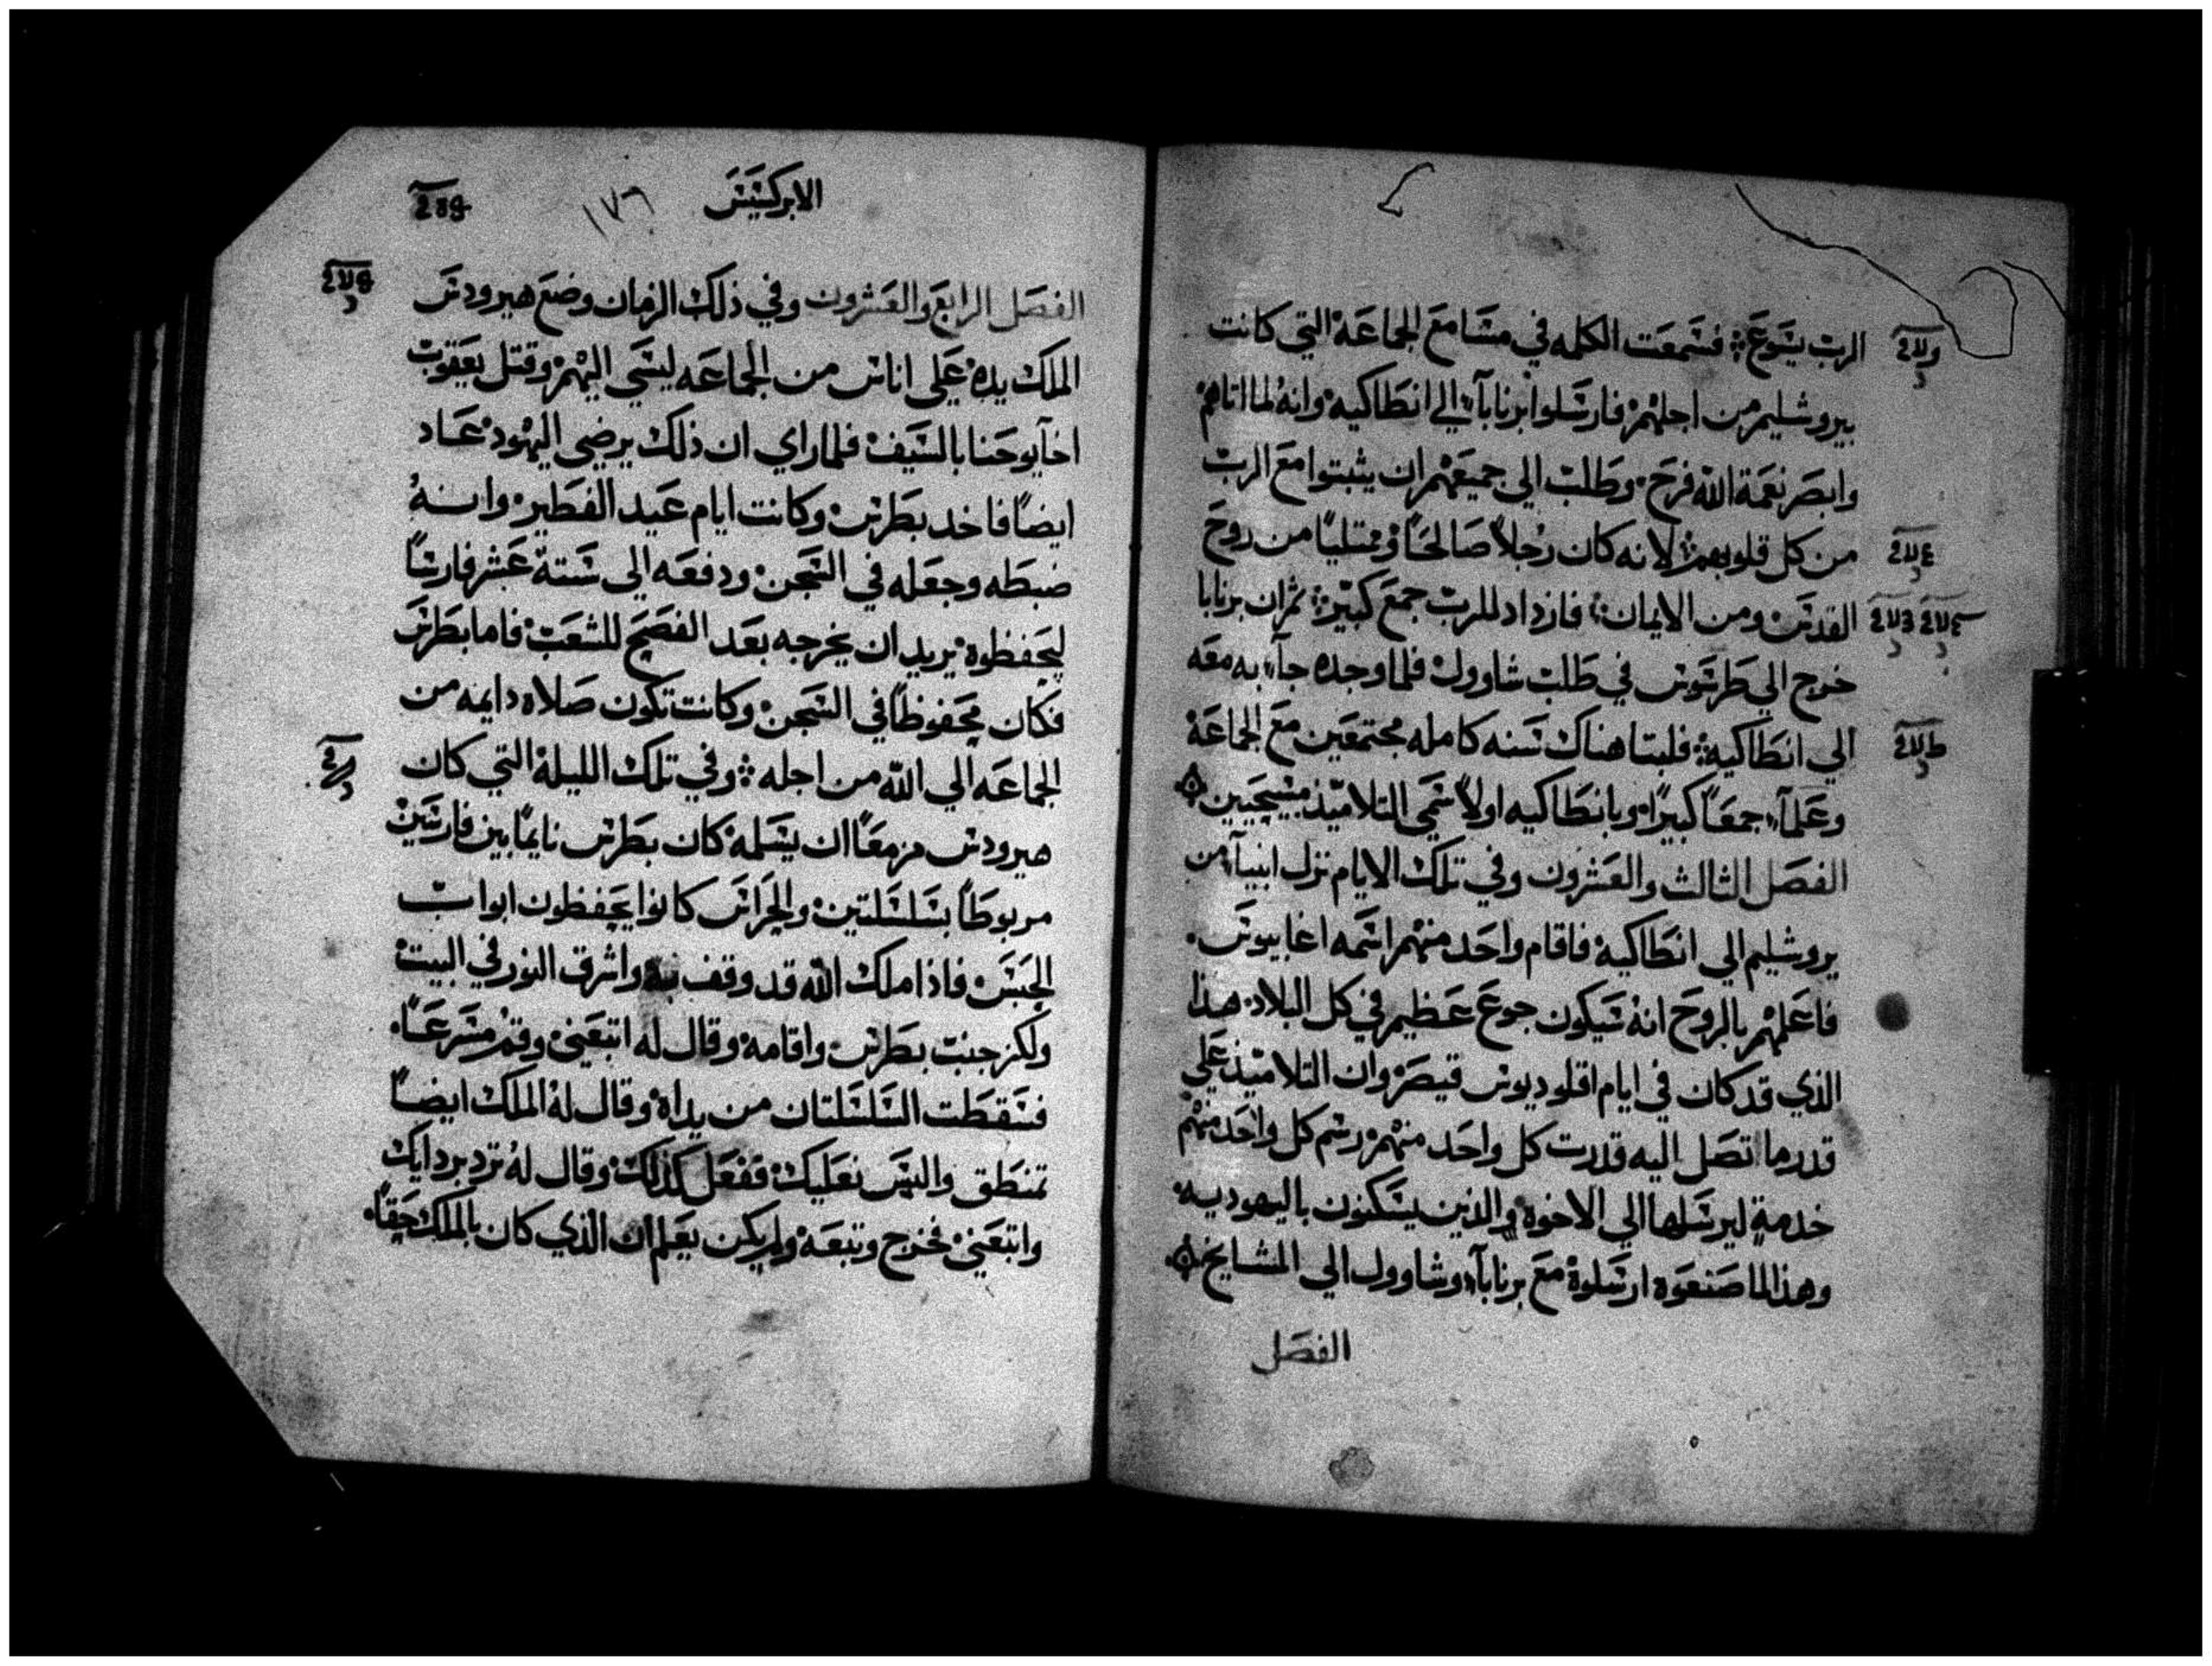 الرب يسوع فسمعت الكلمه في مسامع الجماعة التي كانت
بيروشليم من اجلهم فارسلوا برنابآء الي انطاكيه وانه لما اتاهم
وابصر نعمة الله فرح وطلب الي جميعهم ان يثبتوا مع الرب
من كل قلوبهم لانه كان رجلاً صالحاً وممتلياً من روح
القدس ومن الايمان فازداد للرب جمع كبير ثم ان برنابا
خرج الي طرسوس في طلب شاوول فلما وجده جآء به معه
الي انطاكيه فلبتا هناك سنه كامله مجتمعين مع الجماعة
وعلمآء جمعاً كبيراً وبانطاكيه اولاً سمي التلاميذ مسيحيين
الفصل الثالث والعشرون وفي تلك الايام نزل انبيآء من
يروشليم الي انطاكية فاقام واحد منهم اسمه اغابيوس
فاعلمهم بالروح انه سيكون جوع عظيم في كل البلاد هذا
الذي قد كان في ايام اقلوديوس قيصر وان التلاميذ علي
قدر ما تصل اليه قدرت كل واحد منهم رسم كل واحد منهم
خدمة ليرسلها الي الاخوة والذين يسكنون باليهوديه
وهذا لما صنعوه ارسلوة مع برنابآء وشاوول الي المشايخ
الفصل
الابركسيس
١٧٦
الفصل الرابع والعشرون وفي ذلك الزمان وضع هيرودس
الملك يده علي اناس من الجماعه ليسي اليهم وقتل يعقوب
اخآ يوحنا بالسيف فلما راي ان ذلك يرضي اليهود عاد
ايضاً فاخد بطرس وكانت ايام عيد الفطير وانه
ضبطه وجعله في السجن ودفعه الي ستة عشر فارساً
ليحفظوة يريد ان يخرجه بعد الفصح للشعب فاما بطرس
فكان محفوظاً في السجن وكانت تكون صلاه دايمه من
الجماعه الي الله من اجله وفي تلك الليلة التي كان
هيرودس مزمعاً ان يسلمه كان بطرس نايماً بين فارسين
مربوطاً بسلسلتين والحراس كانوا يحفظون ابواب
الحبس فاذا ملك الله قد وقف به واشرق النور في البيت
ولكز جنب بطرس واقامه وقال له اتبعني وقم مسرعاً
فسقطت السلسلتان من يداه وقال له الملك ايضاً
تمنطق والبس نعليك ففعل كذلك وقال له ترد برداك
واتبعني فخرج وتبعه ولم يكن يعلم ان الذي كان بالملك حقاً